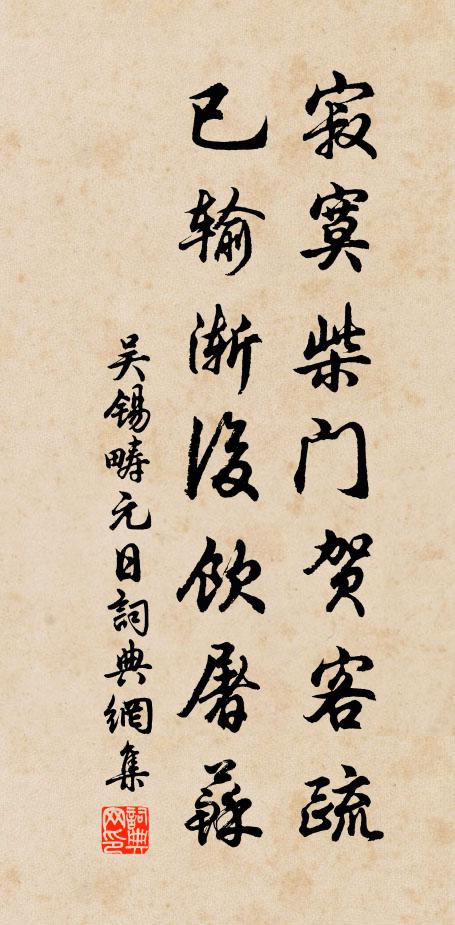 寂寞柴门贺客疏
已输渐後饮屠蘇
吴锡畴元日詞典網集
詞典网印